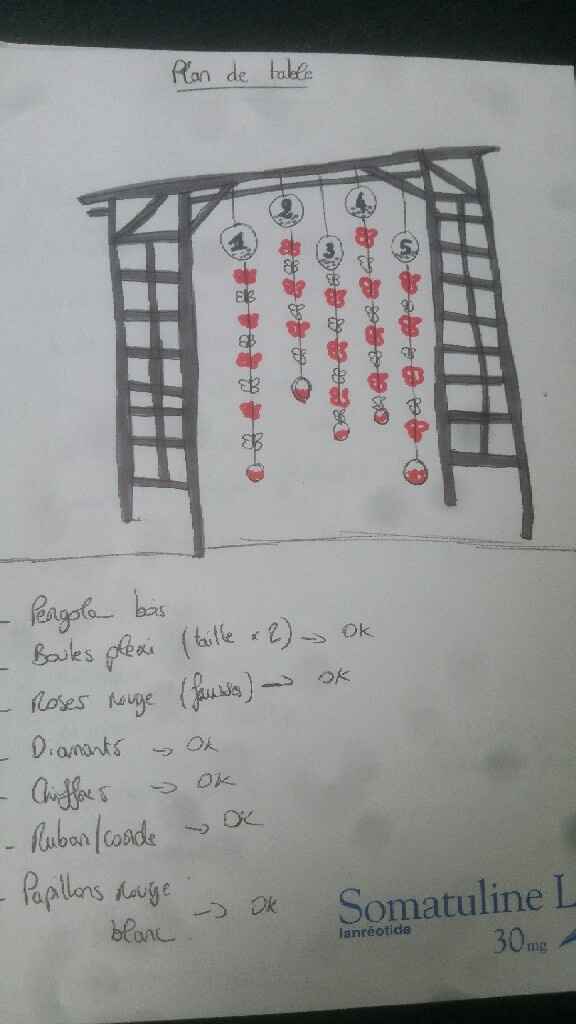 Plan de table
1 2 3 4 5
- Pergola bois
- Boules plexi (taille x 2) → OK
- Roses rouge (fausses) → OK
- Diamants → OK
- Chiffres → OK
- Ruban/corde → OK
- Papillons rouge
blanc → OK
Somatuline L
lanréotide
30 mg